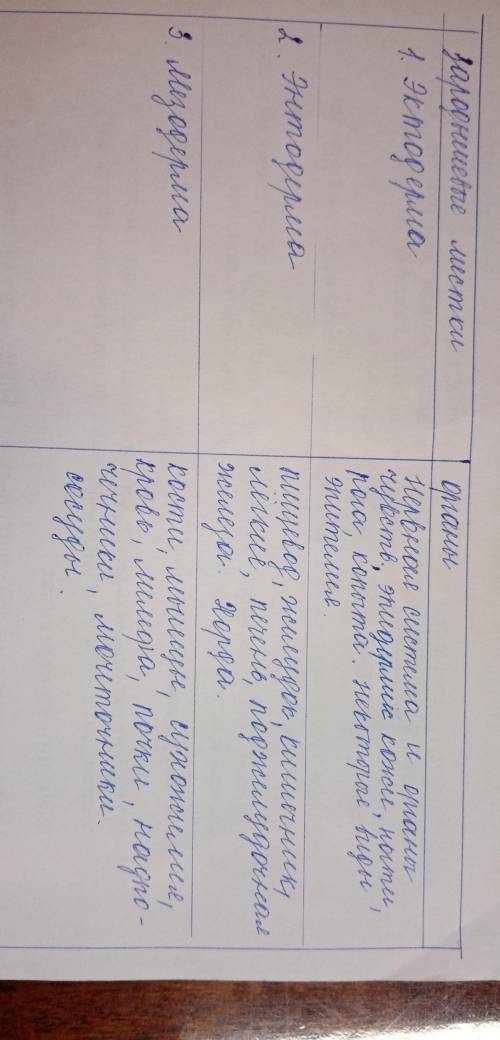 зародышевые листки
органы
1. Эктодерма
нервная система и органы
чувств, эпидермис кожи, ногти,
рога, копыта. некоторые виды
эпителия.
2. Энтодерма
пищевод, желудок, кишечник,
лёгкие, печень, поджелудочная
железа. Хорда.
3. Мезодерма
кости, мышцы, сухожилия,
кровь, лимфа, почки, надпо-
чечники, мочеточники.
сосуды.